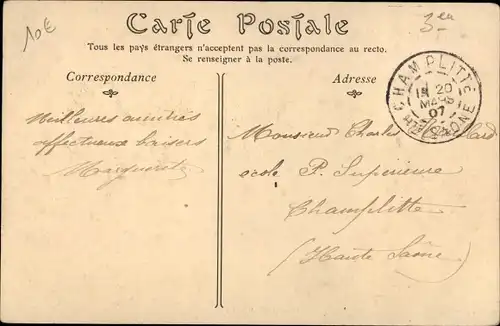 10€
Carte Postale
Tous les pays étrangers n'acceptent pas la correspondance au recto.
Se renseigner à la poste.
Correspondance
Adresse
CHAMPLITTE
20
MARS
07
Hte SAONE
Meilleures amitiés
affectueux baisers
Marguerite
Monsieur Charles
école P. Supérieure
Champlitte
(Haute Saône)